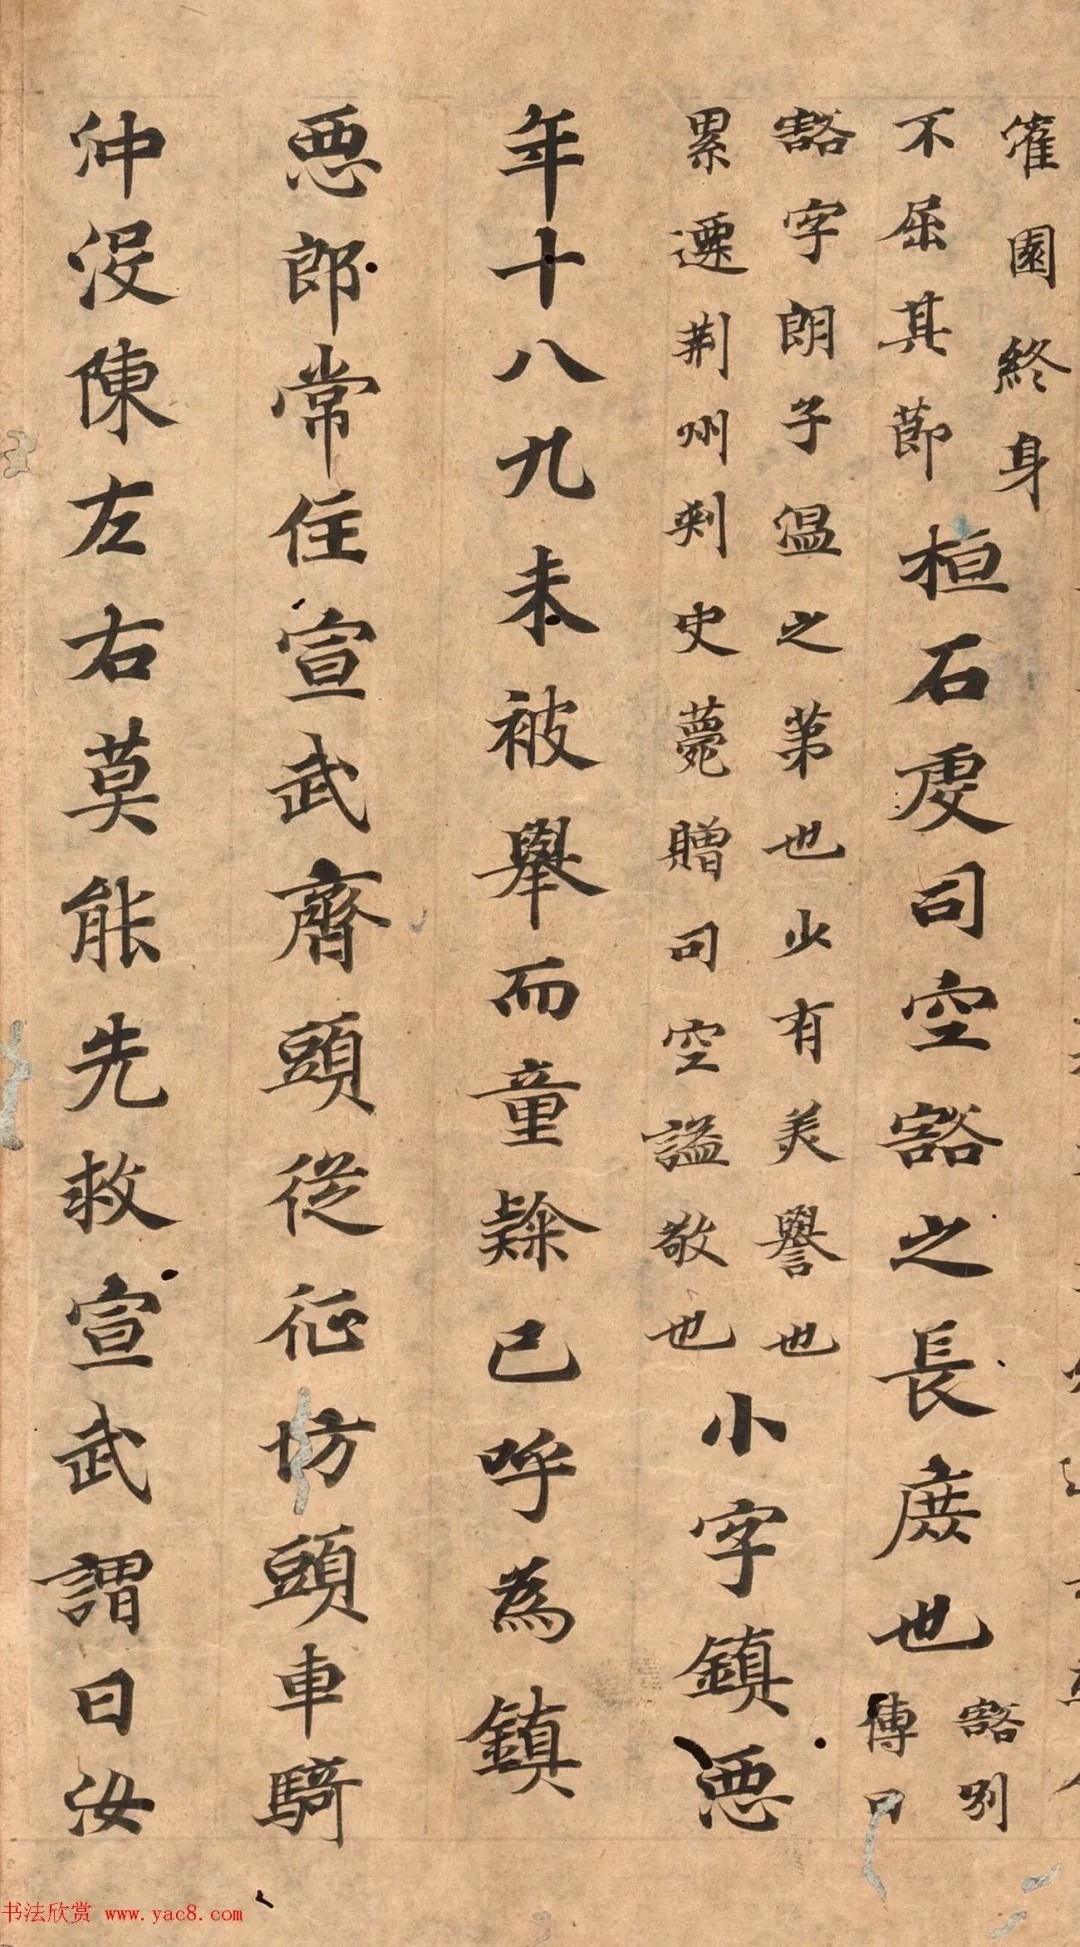 灌園終身
不屈其節
桓石虔司空豁之長庶也
豁別
傳曰
豁字朗子温之弟也少有美譽也
累遷荆州刺史薨贈司空謚敬也
小字鎮惡
年十八九未被舉而童隷已呼為鎮
惡郎常住宣武齊頭從征枋頭車騎
仲没陳左右莫能先救宣武謂曰汝
书法欣赏 www.yac8.com